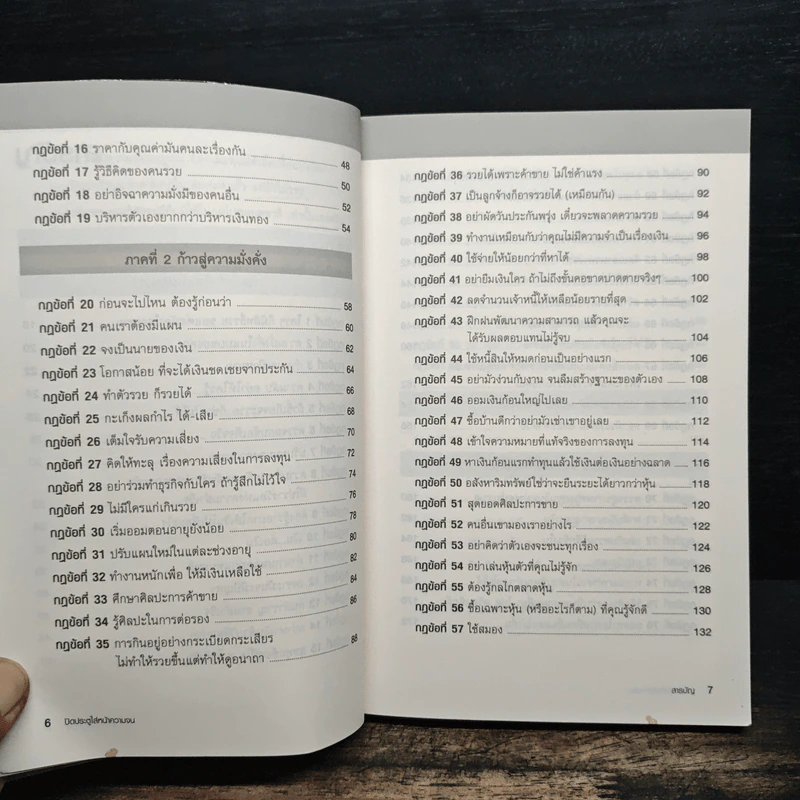 กฎข้อที่ 16 ราคากับคุณค่ามันคนละเรื่องกัน 48
กฎข้อที่ 17 รู้วิธีคิดของคนรวย 50
กฎข้อที่ 18 อย่าอิจฉาความมั่งมีของคนอื่น 52
กฎข้อที่ 19 บริหารตัวเองยากกว่าบริหารเงินทอง 54
ภาคที่ 2 ก้าวสู่ความมั่งคั่ง
กฎข้อที่ 20 ก่อนจะไปไหน ต้องรู้ก่อนว่า 58
กฎข้อที่ 21 คนเราต้องมีแผน 60
กฎข้อที่ 22 จงเป็นนายของเงิน 62
กฎข้อที่ 23 โอกาสน้อย ที่จะได้เงินชดเชยจากประกัน 64
กฎข้อที่ 24 ทำตัวรวย ก็รวยได้ 66
กฎข้อที่ 25 กะเก็งผลกำไร ได้-เสีย 68
กฎข้อที่ 26 เต็มใจรับความเสี่ยง 70
กฎข้อที่ 27 คิดให้ทะลุ เรื่องความเสี่ยงในการลงทุน 72
กฎข้อที่ 28 อย่าร่วมทำธุรกิจกับใคร ถ้ารู้สึกไม่ไว้ใจ 74
กฎข้อที่ 29 ไม่มีใครแก่เกินรวย 76
กฎข้อที่ 30 เริ่มออมตอนอายุยังน้อย 78
กฎข้อที่ 31 ปรับแผนใหม่ในแต่ละช่วงอายุ 80
กฎข้อที่ 32 ทำงานหนักเพื่อ ให้มีเงินเหลือใช้ 82
กฎข้อที่ 33 ศึกษาศิลปะการค้าขาย 84
กฎข้อที่ 34 รู้ศิลปะในการต่อรอง 86
กฎข้อที่ 35 การกินอยู่อย่างกระเบียดกระเสียร
ไม่ทำให้รวยขึ้นแต่ทำให้ดูอนาถา 88
6 ปิดประตูใส่หน้าความจน
กฎข้อที่ 36 รวยได้เพราะค้าขาย ไม่ใช่ค้าแรง 90
กฎข้อที่ 37 เป็นลูกจ้างก็อาจรวยได้ (เหมือนกัน) 92
กฎข้อที่ 38 อย่าผัดวันประกันพรุ่ง เดี๋ยวจะพลาดความรวย 94
กฎข้อที่ 39 ทำงานเหมือนกับว่าคุณไม่มีความจำเป็นเรื่องเงิน 96
กฎข้อที่ 40 ใช้จ่ายให้น้อยกว่าที่หาได้ 98
กฎข้อที่ 41 อย่ายืมเงินใคร ถ้าไม่ถึงขั้นคอขาดบาดตายจริงๆ 100
กฎข้อที่ 42 ลดจำนวนเจ้าหนี้ให้เหลือน้อยรายที่สุด 102
กฎข้อที่ 43 ฝึกฝนพัฒนาความสามารถ แล้วคุณจะ
ได้รับผลตอบแทนไม่รู้จบ 104
กฎข้อที่ 44 ใช้หนี้สินให้หมดก่อนเป็นอย่างแรก 106
กฎข้อที่ 45 อย่ามัวง่วนกับงาน จนลืมสร้างฐานะของตัวเอง 108
กฎข้อที่ 46 ออมเงินก้อนใหญ่ไปเลย 110
กฎข้อที่ 47 ซื้อบ้านดีกว่าอย่ามัวเช่าเขาอยู่เลย 112
กฎข้อที่ 48 เข้าใจความหมายที่แท้จริงของการลงทุน 114
กฎข้อที่ 49 หาเงินก้อนแรกทำทุนแล้วใช้เงินต่อเงินอย่างฉลาด 116
กฎข้อที่ 50 อสังหาริมทรัพย์ใช่ว่าจะยืนระยะได้ยาวกว่าหุ้น 118
กฎข้อที่ 51 สุดยอดศิลปะการขาย 120
กฎข้อที่ 52 คนอื่นเขามองเราอย่างไร 122
กฎข้อที่ 53 อย่าคิดว่าตัวเองจะชนะทุกเรื่อง 124
กฎข้อที่ 54 อย่าเล่นหุ้นตัวที่คุณไม่รู้จัก 126
กฎข้อที่ 55 ต้องรู้กลไกตลาดหุ้น 128
กฎข้อที่ 56 ซื้อเฉพาะหุ้น (หรืออะไรก็ตาม) ที่คุณรู้จักดี 130
กฎข้อที่ 57 ใช้สมอง 132
สารบัญ 7